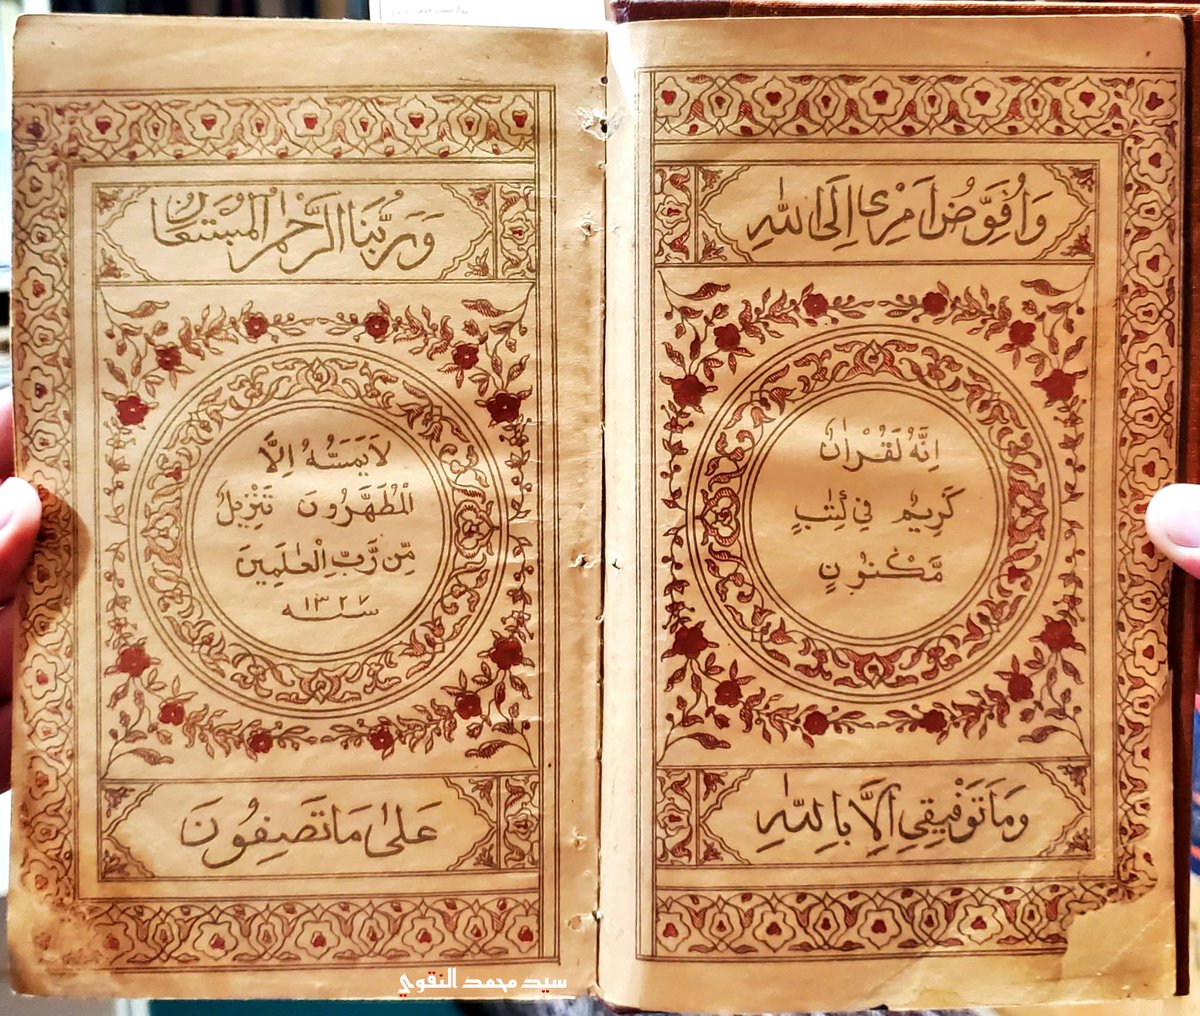 وَاُفَوِّضُ اَمْرِى اِلَى اللهِ
اِنَّهُ لَقُرْاٰنٌ
كَرِيمٌ فِي كِتٰبٍ
مَّكْنُونٍ
وَمَا تَوْفِيقِي اِلَّا بِاللهِ
وَرَبُّنَا الرَّحْمٰنُ الْمُسْتَعَانُ
لَا يَمَسُّهُ اِلَّا
الْمُطَهَّرُونَ تَنْزِيلٌ
مِّن رَّبِّ الْعٰلَمِينَ
سنه ١٣٢٧
عَلٰى مَا تَصِفُونَ
سيد محمد النقوي